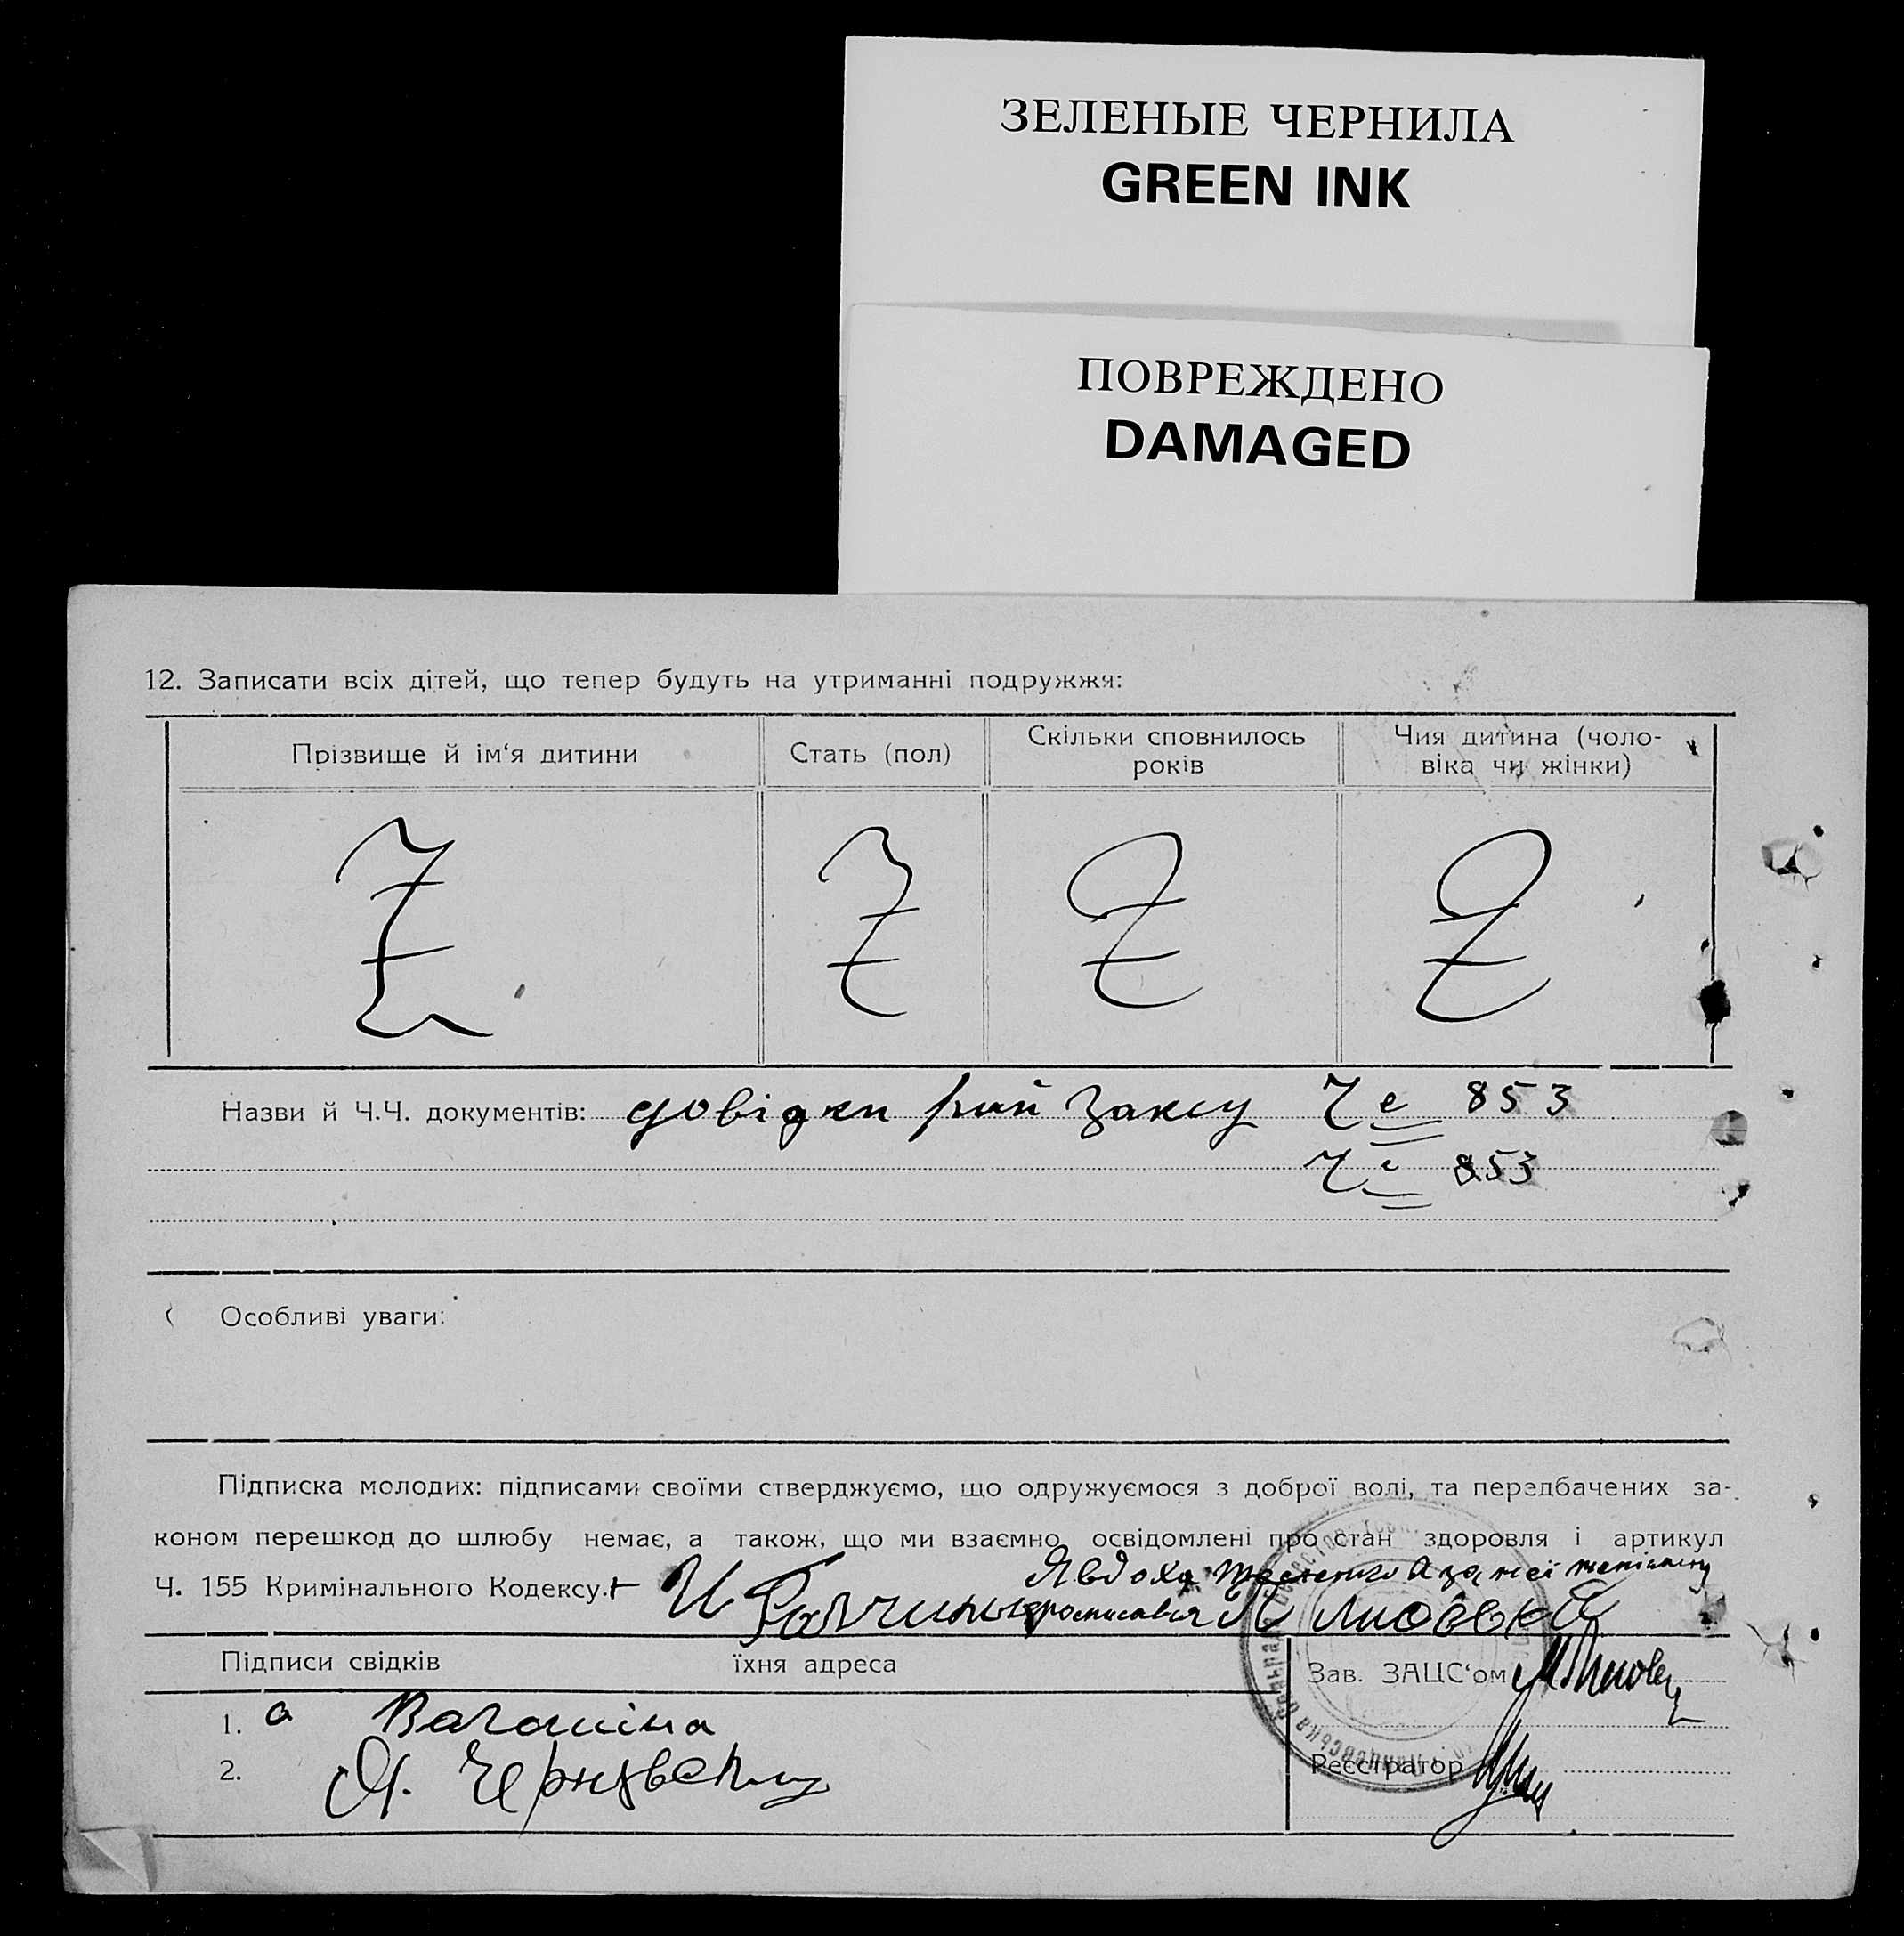 ЗЕЛЕНЫЕ ЧЕРНИЛА
GREEN INK
ПОВРЕЖДЕНО
DAMAGED
12. Записати всіх дітей, що тепер будуть на утриманні подружжя:
Прізвище й ім‘я дитини
Стать (пол)
Скільки сповнилось
років
Чия дитина (чоло-
віка чи жінки)
Назви й Ч.Ч. документів: довідки рай Загсу 853
853
Особливі уваги:
Підписка молодих: підписами своїми стверджуємо, що одружуємося з доброї волі, та передбачених за-
коном перешкод до шлюбу немає, а також, що ми взаємно освідомлені про стан здоровля і артикул
Явдоха а за неї
Ч. 155 Кримінального Кодексу. И росписався
Підписи свідків
їхня адреса
Зав. ЗАЦС‘ом
1. а
2.
Реєстратор